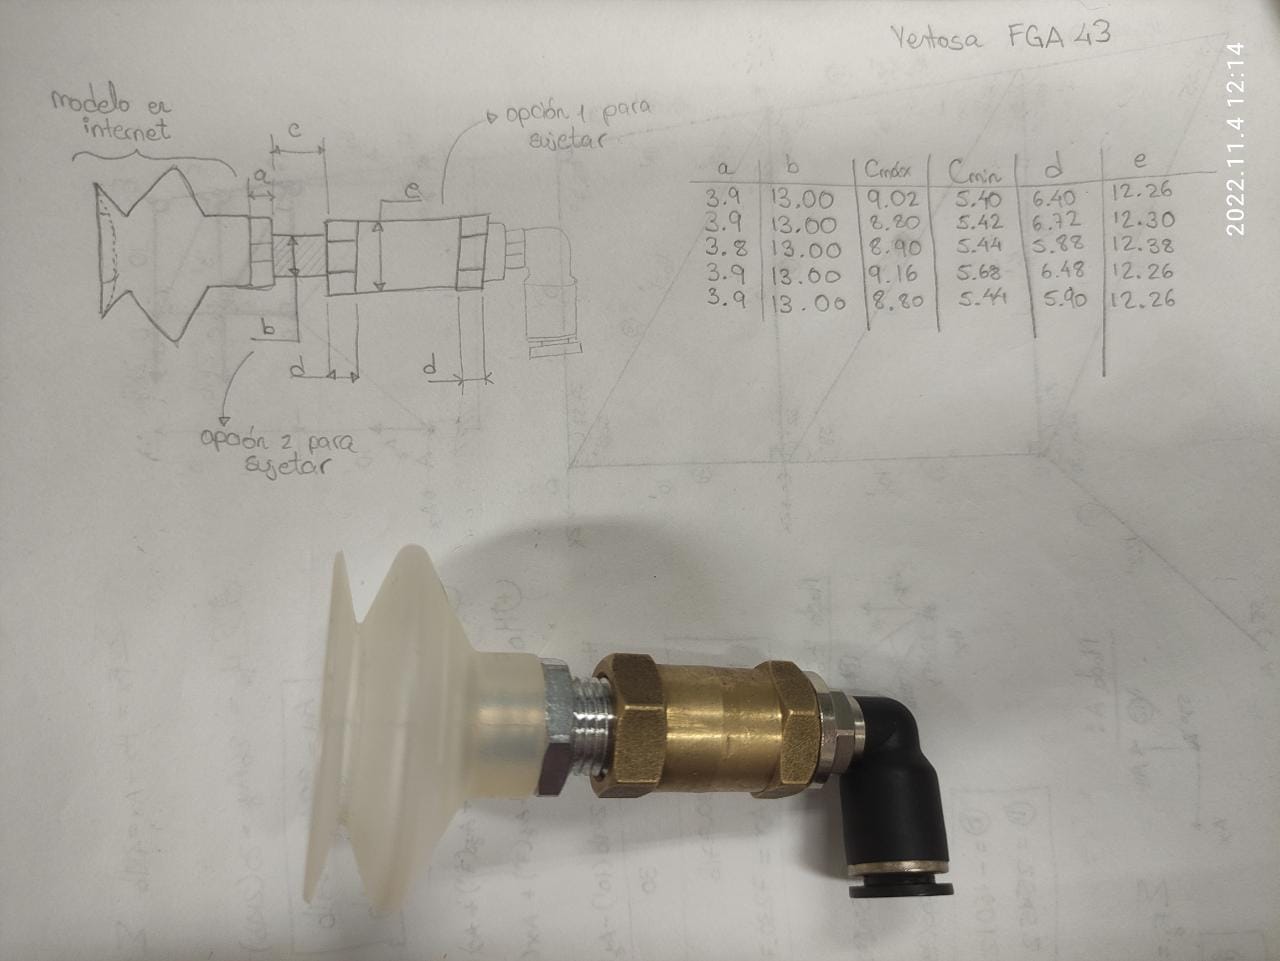 Ventosa FGA 43
2022.11.4 12:14
modelo en
internet
c
a
e
opción 1 para
sujetar
b
d
d
opción 2 para
sujetar
a b Cmáx Cmin d e
3.9 13.00 9.02 5.40 6.40 12.26
3.9 13.00 8.80 5.42 6.72 12.30
3.8 13.00 8.90 5.44 5.88 12.38
3.9 13.00 9.16 5.68 6.48 12.26
3.9 13.00 8.80 5.44 5.90 12.26